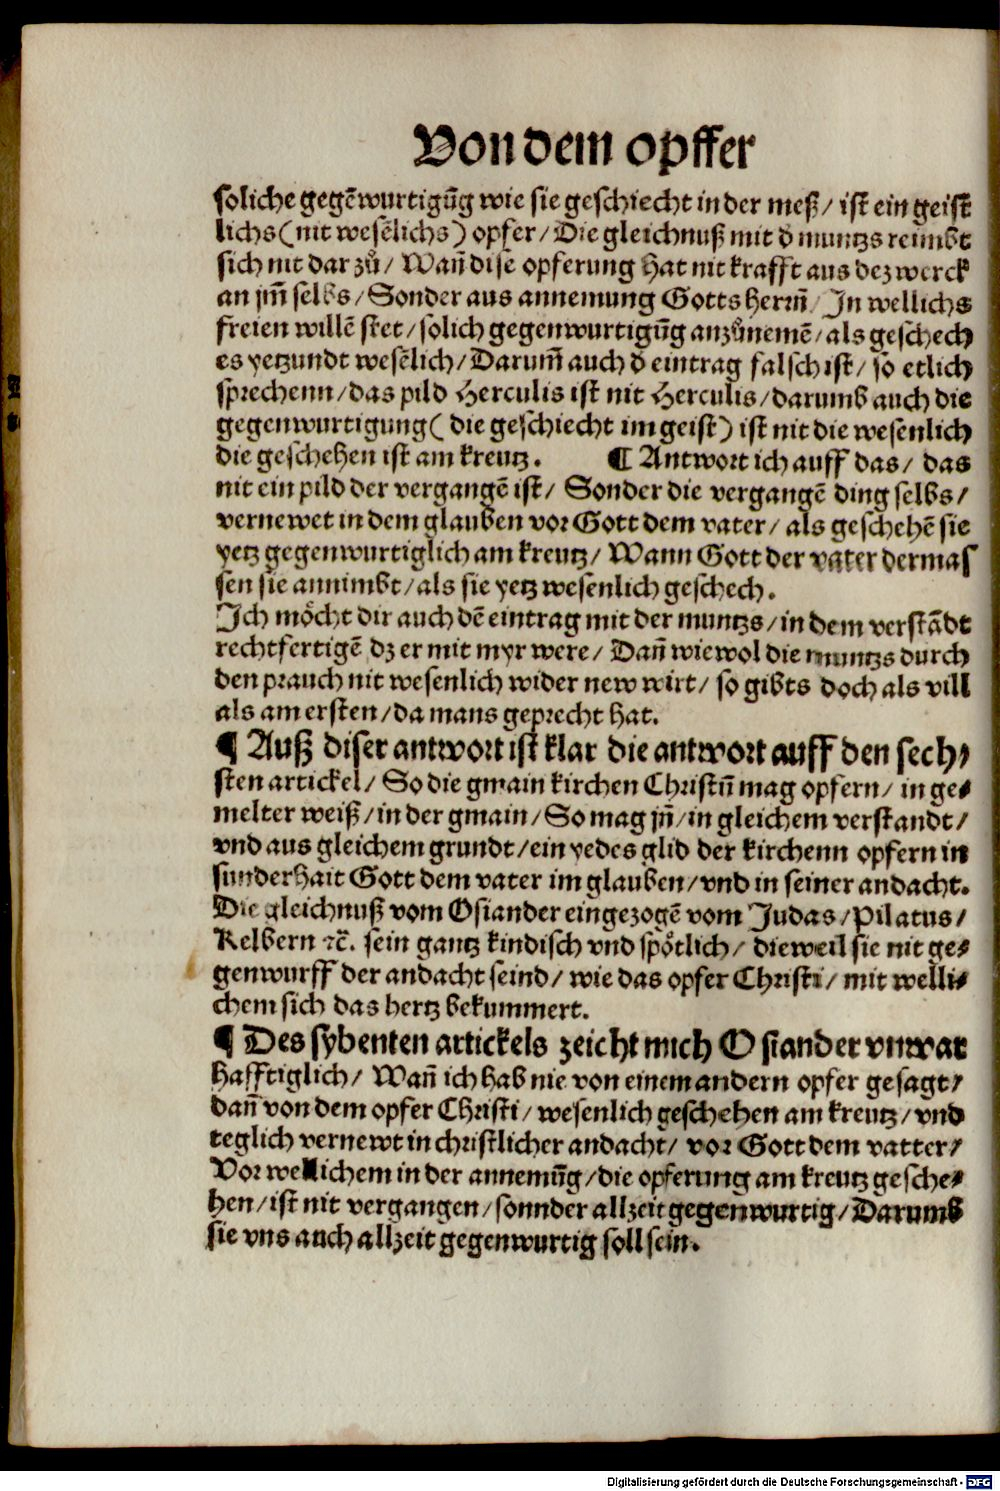 Von dem opffer
soliche gegēwurtigūg wie sie geschiecht in der meß/ ist ein geist
lichs (nit wesēlichs) opfer/ Die gleichnuß mit d muntzs reimbt
sich nit dar zů/ Wañ dise opferung hat nit krafft aus dez werck
an jm̄ selbs/ Sonder aus annemung Gotts herrn̄/ In wellichs
freien willē stet/ solich gegenwurtigūg anzůnemē/ als geschech
es yetzundt wesēlich/ Darum̄ auch d eintrag falsch ist/ so etlich
sprechenn/ das pild Herculis ist nit Herculis/ darumb auch die
gegenwurtigung (die geschiecht im geist) ist nit die wesenlich
die geschehen ist am kreutz. ¶ Antwort ich auff das/ das
nit ein pild der vergangē ist/ Sonder die vergangē ding selbs/
vernewet in dem glauben vor Gott dem vater/ als geschehē sie
yetz gegenwurtiglich am kreutz/ Wann Gott der vater dermas
sen sie annimbt/ als sie yetz wesenlich geschech.
Ich möcht dir auch dē eintrag mit der muntzs/ in dem verstādt
rechtfertigē dz er mit myr were/ Dañ wiewol die muntzs durch
den prauch nit wesenlich wider new wirt/ so gibts doch als vill
als am ersten/ da mans geprecht hat.
¶ Auß diser antwort ist klar die antwort auff den sech/
sten artickel/ So die gmain kirchen Christū mag opfern/ in ge/
melter weiß/ in der gmain/ So mag jn̄/ in gleichem verstandt/
vnd aus gleichem grundt/ ein yedes glid der kirchenn opfern in
sunderhait Gott dem vater im glauben/ vnd in seiner andacht.
Die gleichnuß vom Osiander eingezogē vom Judas/ Pilatus/
Kelbern ꝛc̄. sein gantz kindisch vnd spötlich/ dieweil sie nit ge/
genwurff der andacht seind/ wie das opfer Christi/ mit welli/
chem sich das hertz bekummert.
¶ Des sybenten artickels zeicht mich Osiander vnwar
hafftiglich/ Wañ ich hab nie von einem andern opfer gesagt/
dañ von dem opfer Christi/ wesenlich geschehen am kreutz/ vnd
teglich vernewt in christlicher andacht/ vor Gott dem vatter/
Vor wellichem in der annemūg/ die opferung am kreutz gesche/
hen/ ist nit vergangen/ sonnder allzeit gegenwurtig/ Darumb
sie vns auch allzeit gegenwurtig soll sein.
Digitalisierung gefördert durch die Deutsche Forschungsgemeinschaft - DFG